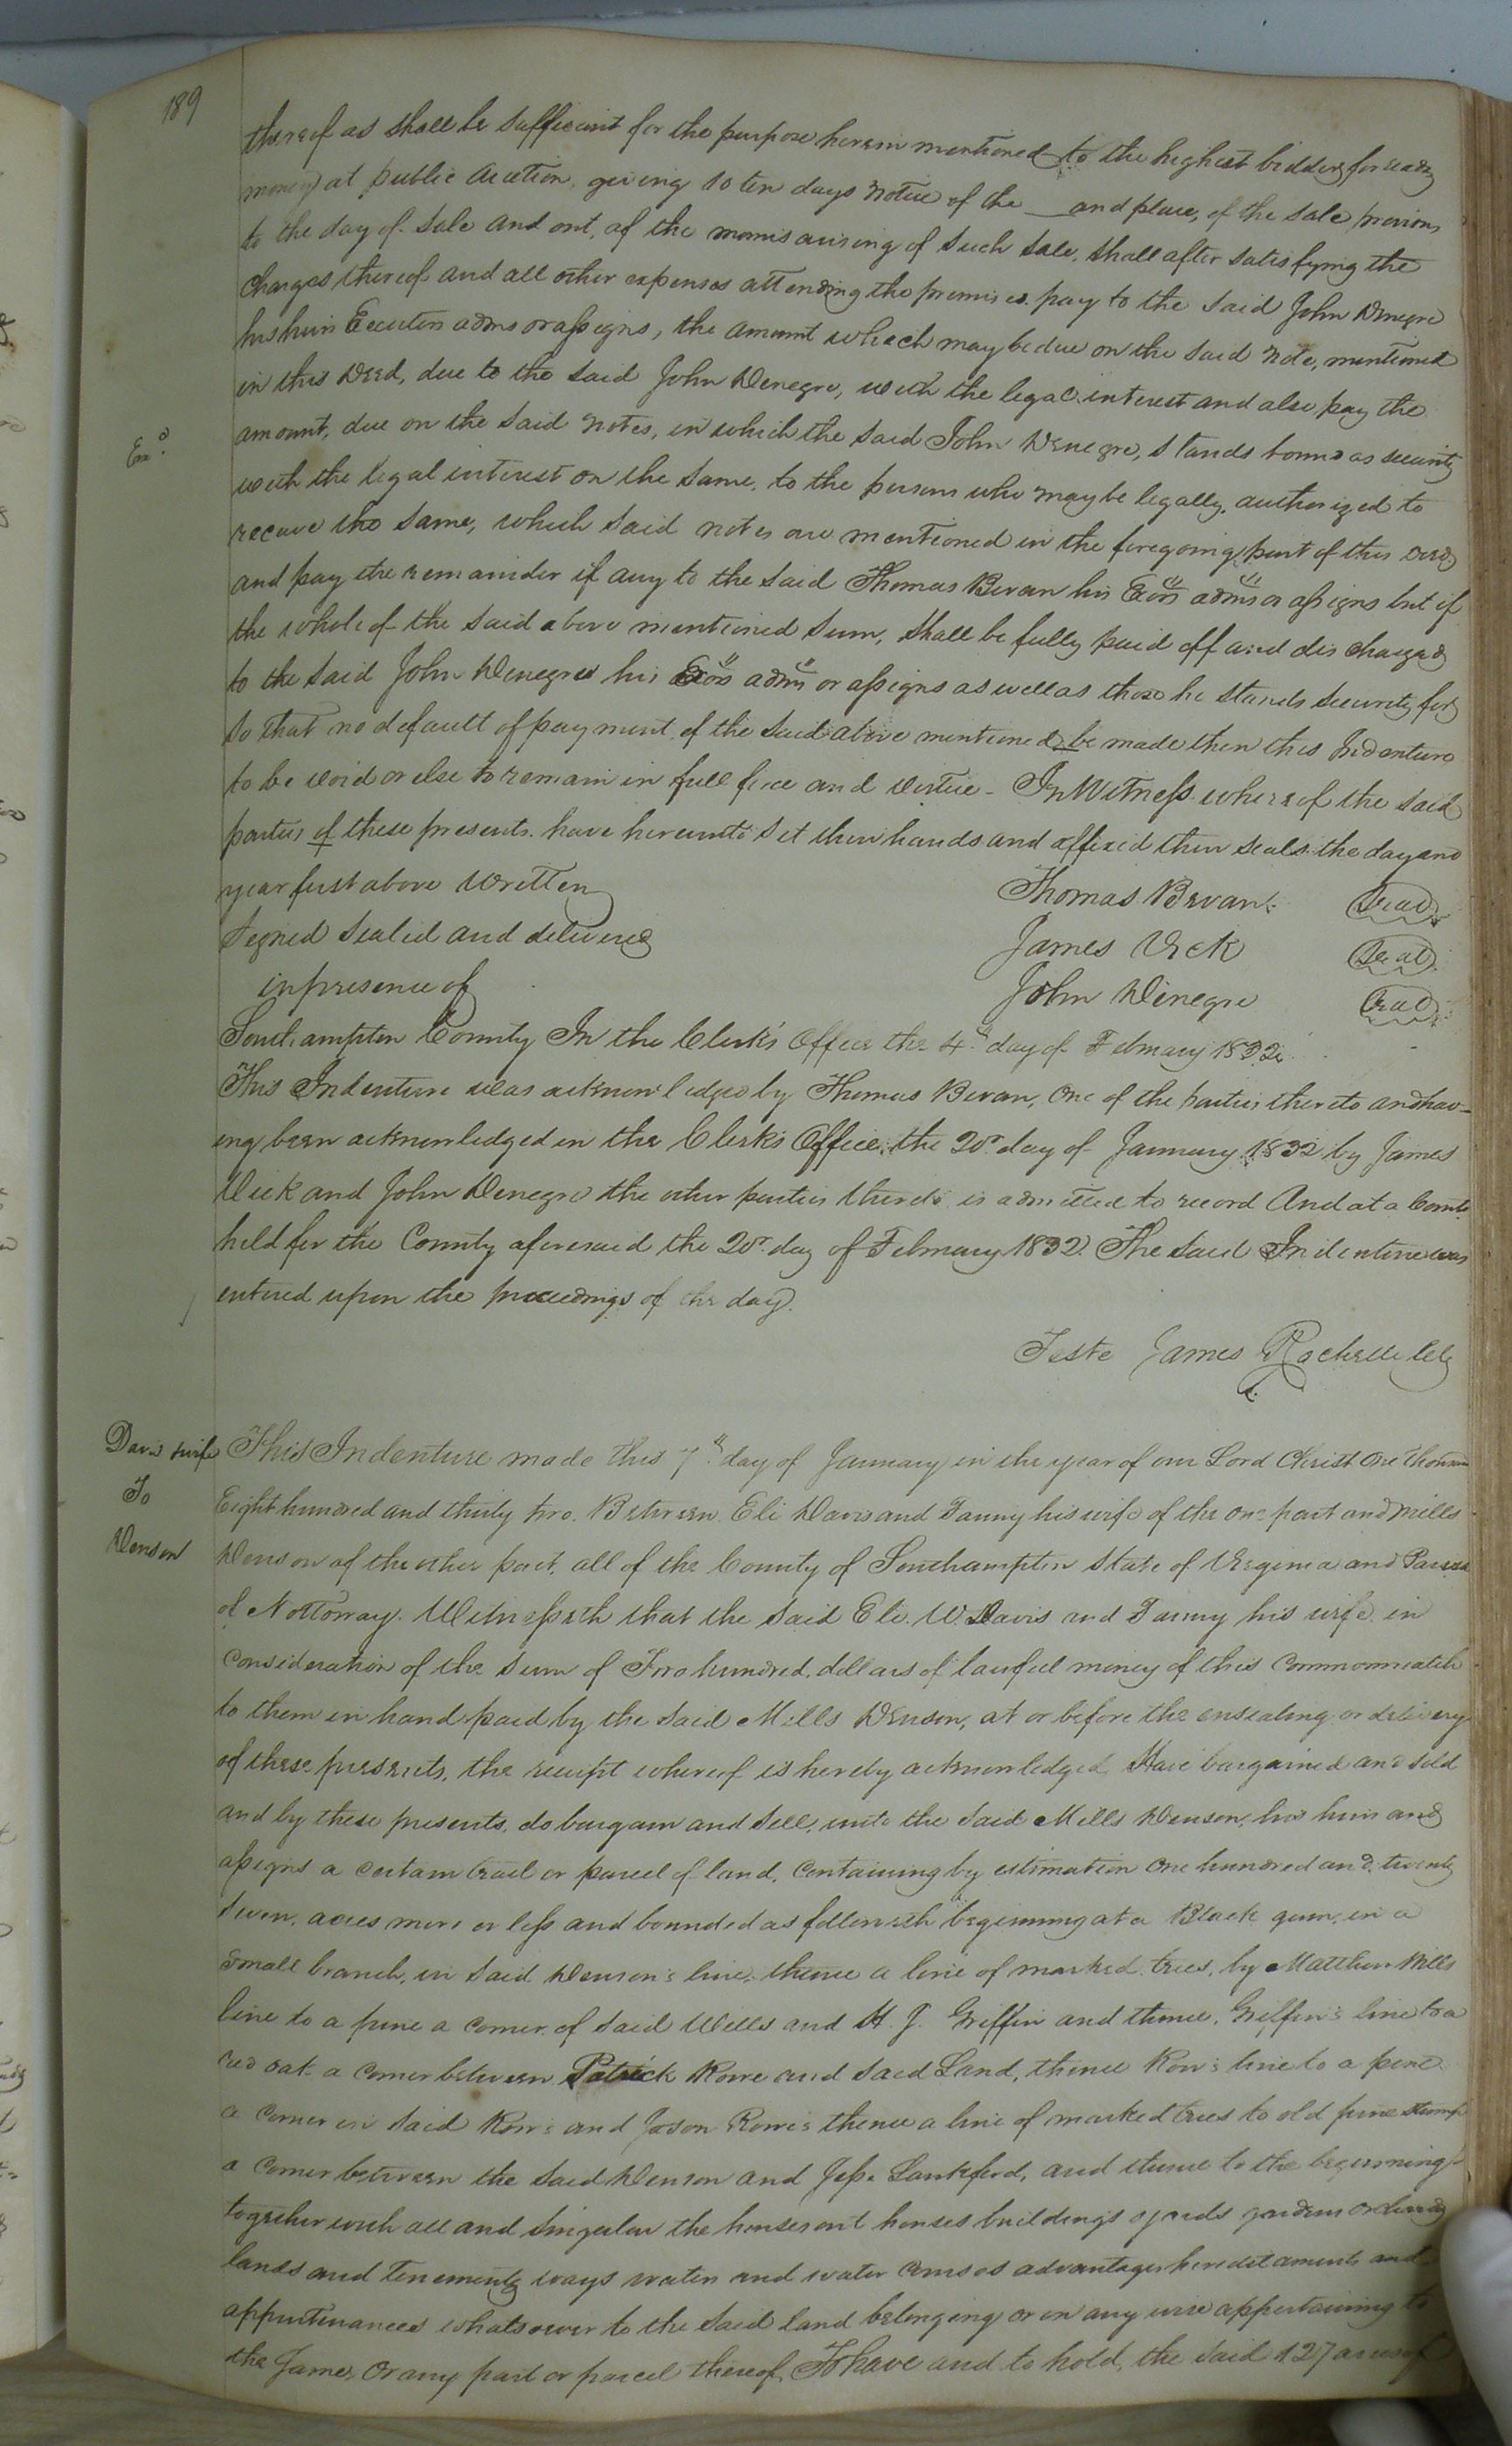 189
thereof as shall be sufficient for the purpose herein mentioned to the highest bidder, for ready
money, at public auction, giving 10 ten days notice of the ___ and place, of the sale previous,
to the day of sale and out, of the monies arising of such sale, shall after satisfying the
charges thereof and all other expenses attending the premises. pay to the said John Denegre
his heirs Executors adms or assigns, the amount which may be due on the said note, mentioned
in this Deed, due to the said John Denegre, with the legal interest and also pay the
Exd.
amount, due on the said notes, in which the said John Denegre, stands bound as security
with the legal interest on the same, to the persons who may be legally authorized to
receive the same, which said notes are mentioned in the foregoing part of this deed
and pay the remainder if any to the said Thomas Bevan his Exors adms or assigns but if
the whole of the said above mentioned sum, shall be fully paid off and discharged
to the said John Denegre his Exors adms or assigns as well as those he stands security for
so that no default of payment, of the said above mentioned be made then this Indenture
to be void or else to remain in full force and virtue - In Witness whereof the said
parties of these presents. have hereunto set their hands and affixed their seals the day and
year first above written
Thomas Bevan. Seal
Signed Sealed and delivered
James Vick Seal
in presence of
John Denegre Seal
Southampton County In the Clerk's Office the 4th day of February 1832.
This Indenture was acknowledged by Thomas Bevan, One of the parties thereto and hav-
ing been acknowledged in the Clerk's Office, the 20th day of January 1832 by James
Vick and John Denegre the other parties thereto is admitted to record And at a Court
held for the County aforesaid the 20th day of February 1832. The said Indenture was
entered upon the proceedings of the day.
Teste James Rochelle Clk
Davis & wife
To
Denson
This Indenture made this 7th day of January in the year of our Lord Christ One Thousand
Eight hundred and thirty two. Between Eli Davis and Fanny his wife of the one part and Mills
Denson of the other part, all of the County of Southampton State of Virginia and Parish
of Nottoway. Witnesseth that the said Eli. W. Davis and Fanny his wife in
consideration of the sum of Two hundred, dollars of lawful money of this commonwealth
to them in hand paid by the said Mills Denson, at or before the ensealing or delivery
of these presents, the receipt whereof is hereby acknowledged Have bargained and sold
and by these presents, do bargain and sell, unto the said Mills Denson, his heirs and
assigns a certain tract or parcel of land, containing by estimation One hundred and twenty
seven, acres more or less and bounded as followeth beginning at a Black gum, in a
small branch, in said Denson's line, thence a line of marked trees, by Matthew Wills
line to a pine a corner of said Wells and H. J. Griffin and thence, Griffin's line to a
red oak a corner between Patrick Rowe and said Land, thence Row's line to a pine
a corner in said Row's and Jason Rowe's thence a line of marked trees to old pine stump
a corner between the said Denson and Jesse Lankford, and thence to the beginning
together with all and singular the houses out houses buildings yards gardens orchards
lands and Tenements ways waters and water courses advantages hereditaments and
appurtenances whatsoever to the said land belonging or in any wise appertaining to
the Same, Or any part or parcel thereof, To have and to hold, the said 127 acres of